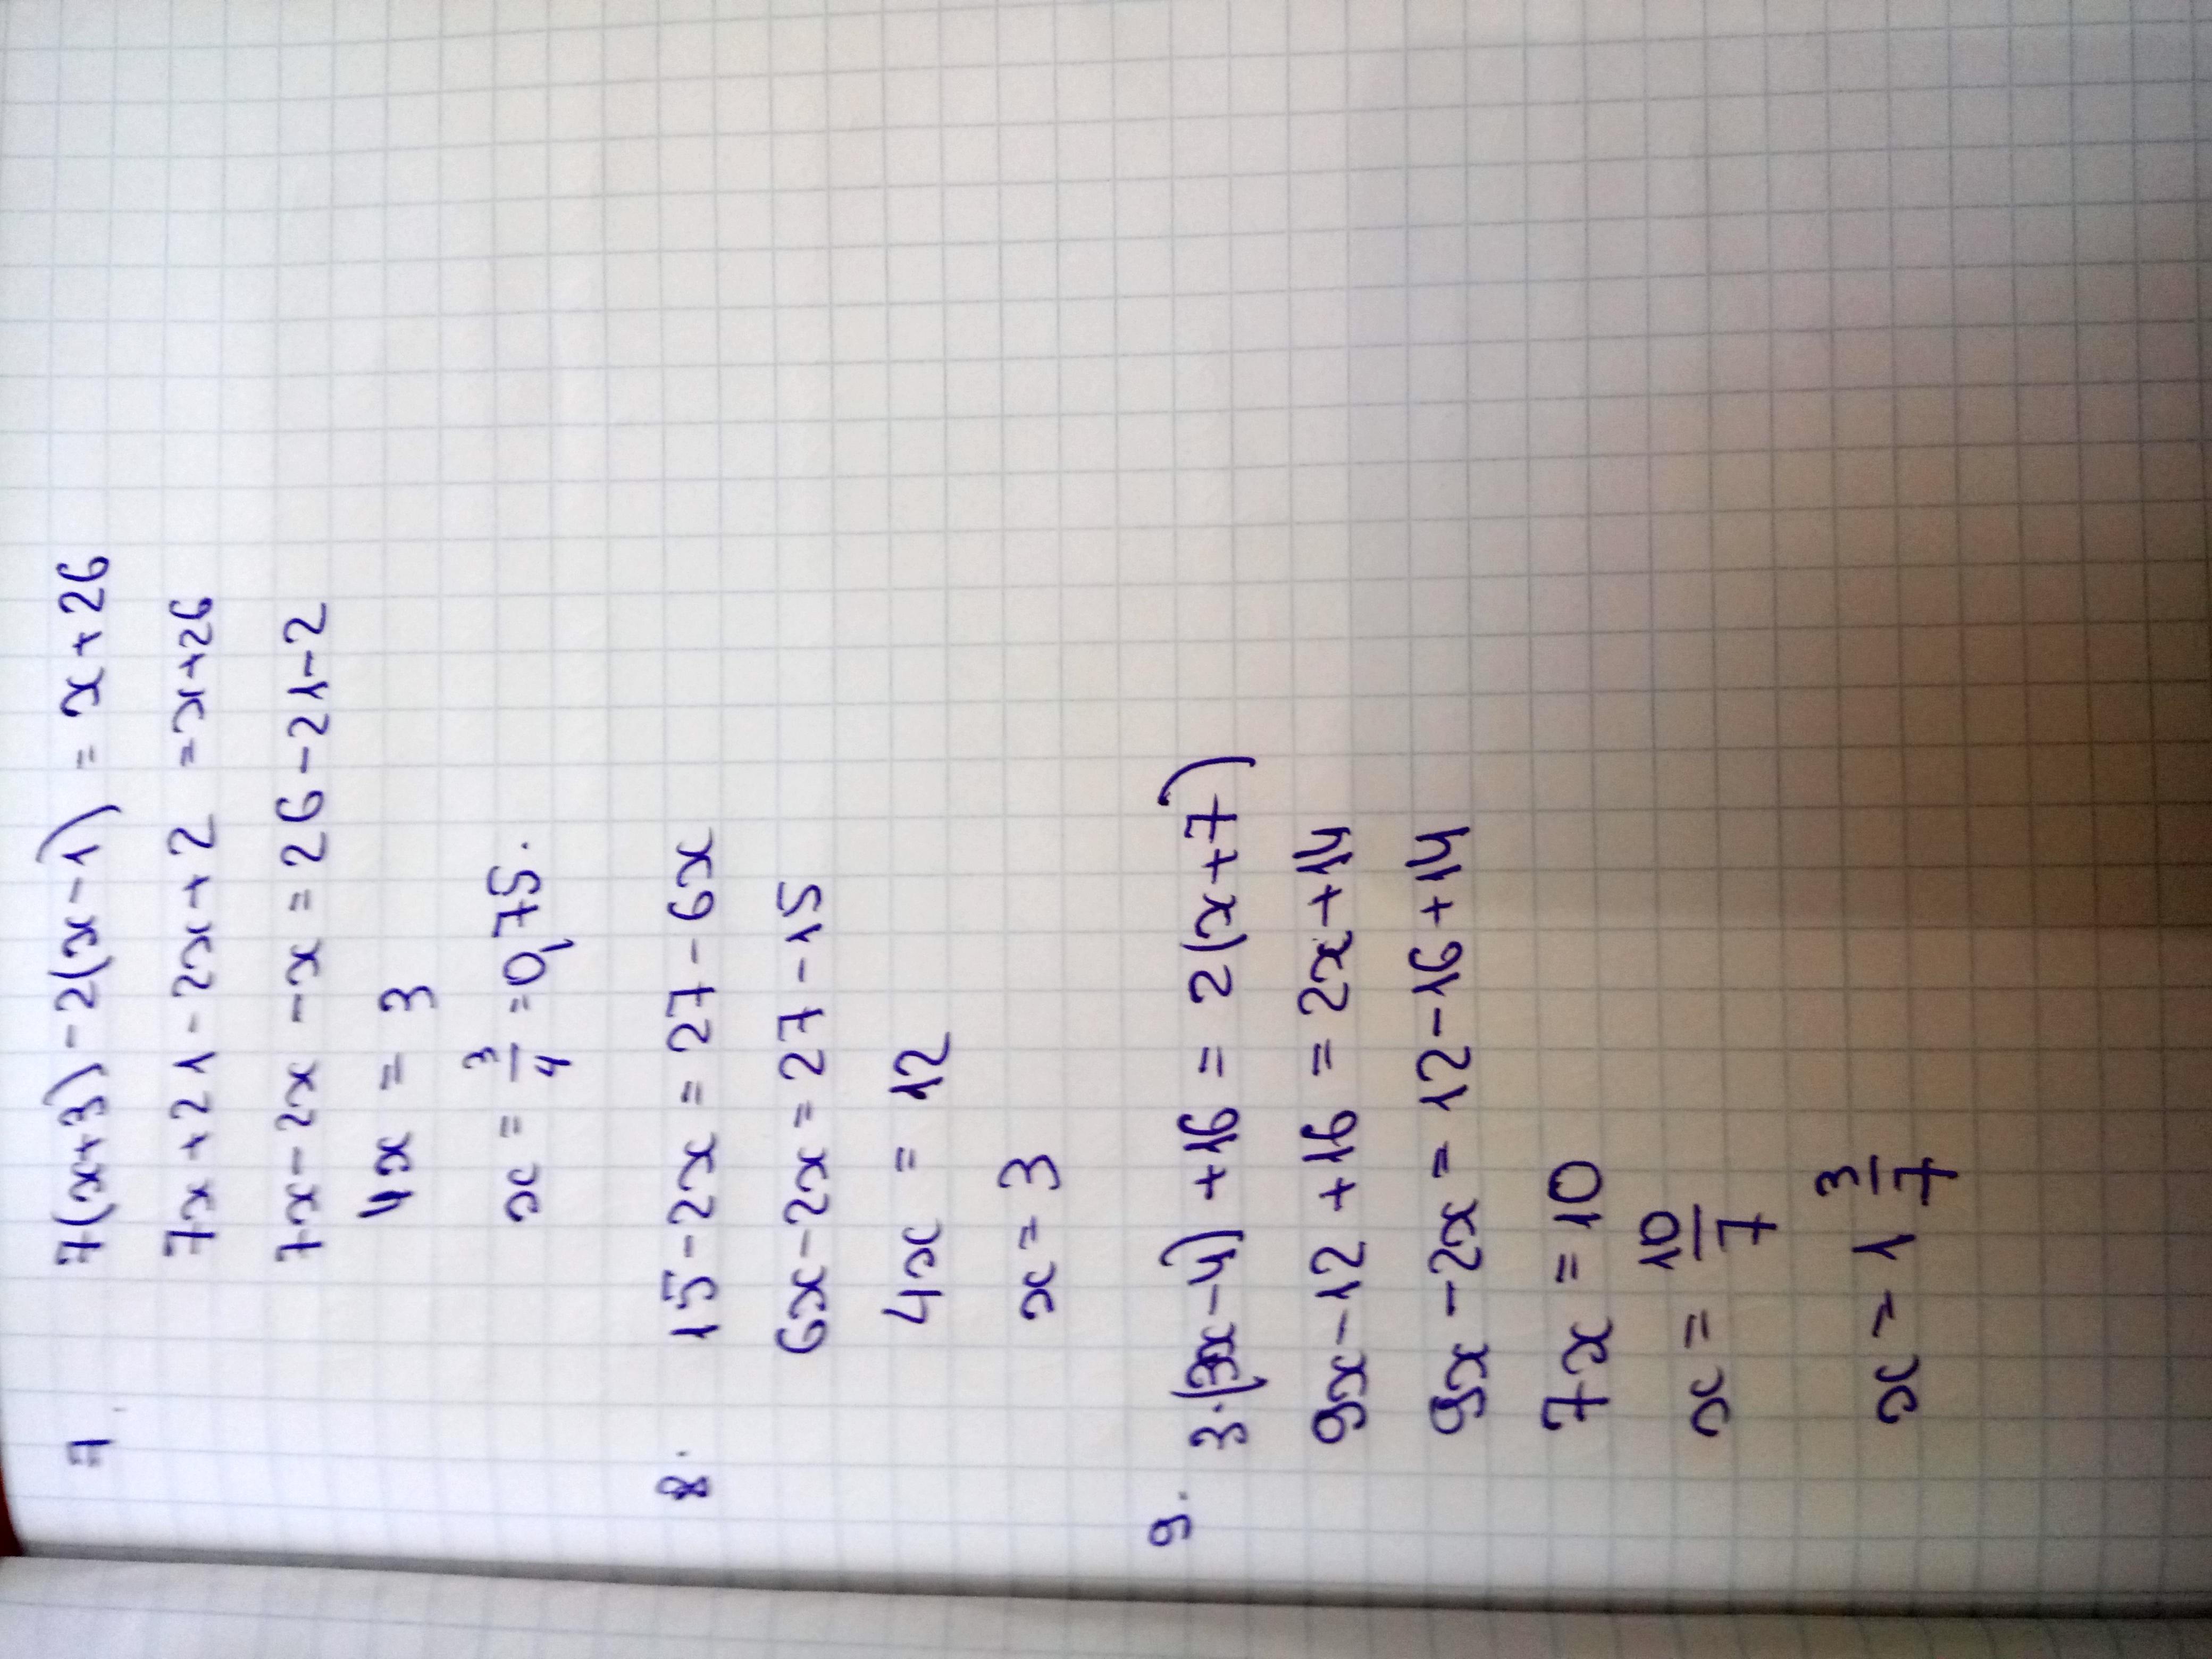 7. 7(x+3)-2(x-1) = x+26
7x+21-2x+2 = x+26
7x-2x-x=26-21-2
4x = 3
x = 3/4 = 0,75.
8. 15-2x = 27-6x
6x-2x=27-15
4x = 12
x = 3
9. 3·(3x-4)+16 = 2(x+7)
9x-12+16 = 2x+14
9x-2x = 12-16+14
7x = 10
x = 10/7
x = 1 3/7